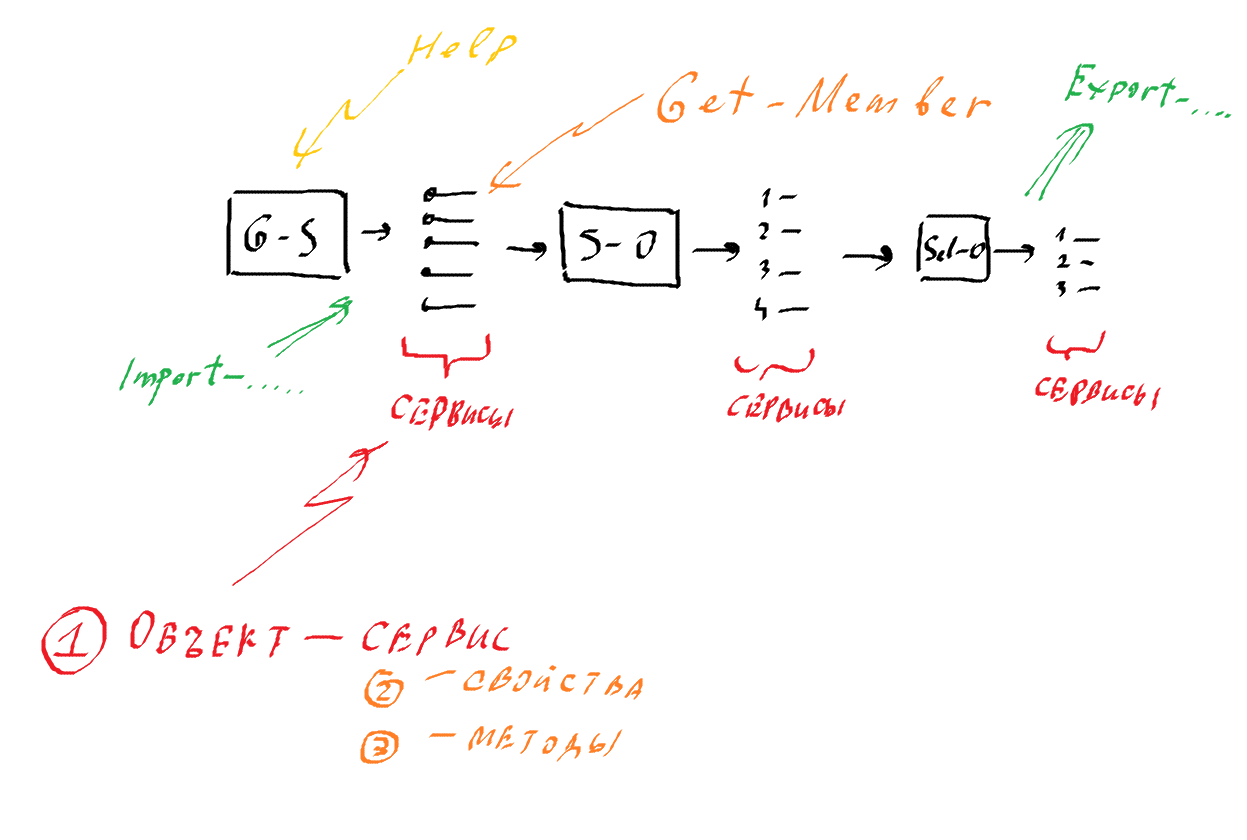 Help
Get-Member
Export-....
G-S
S-O
Sel-O
1 -
2 -
3 -
4 -
1 -
2 -
3 -
Import-.....
СЕРВИСЫ
СЕРВИСЫ
СЕРВИСЫ
1 ОБЪЕКТ - СЕРВИС
2 - СВОЙСТВА
3 - МЕТОДЫ